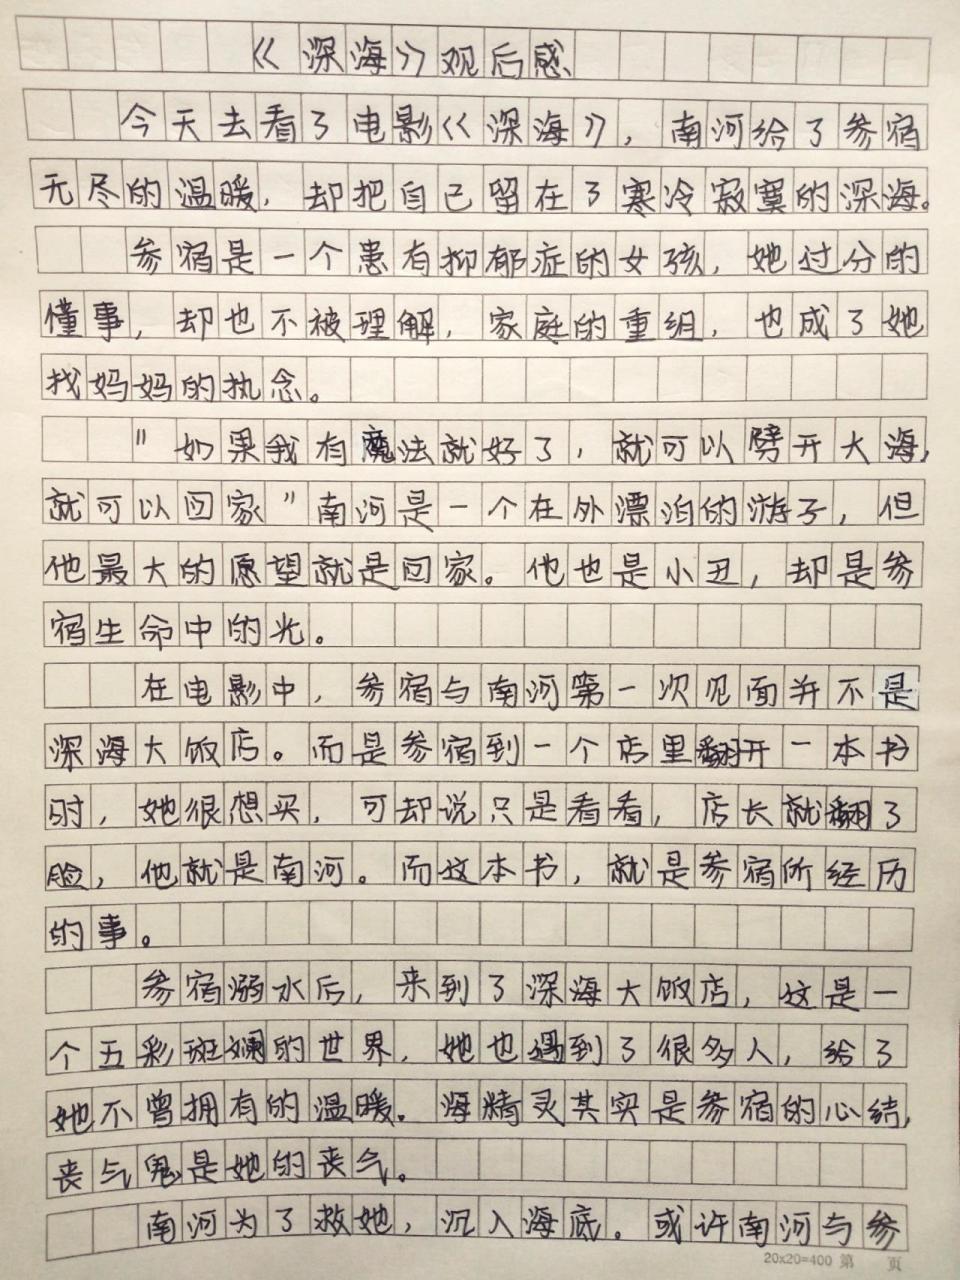 《深海》观后感
今天去看了电影《深海》，南河给了参宿
无尽的温暖，却把自己留在了寒冷寂寞的深海。
参宿是一个患有抑郁症的女孩，她过分的
懂事，却也不被理解，家庭的重组，也成了她
找妈妈的执念。
"如果我有魔法就好了，就可以劈开大海，
就可以回家"南河是一个在外漂泊的游子，但
他最大的愿望就是回家。他也是小丑，却是参
宿生命中的光。
在电影中，参宿与南河第一次见面并不是
深海大饭店。而是参宿到一个店里翻开一本书
时，她很想买，可却说只是看看，店长就翻了
脸，他就是南河。而这本书，就是参宿所经历
的事。
参宿溺水后，来到了深海大饭店，这是一
个五彩斑斓的世界，她也遇到了很多人，给了
她不曾拥有的温暖。海精灵其实是参宿的心结，
丧气鬼是她的丧气。
南河为了救她，沉入海底。或许南河与参
20x20=400 第 页